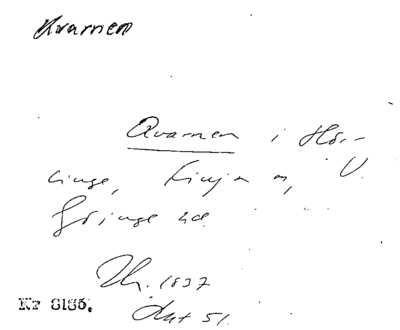 Kvarnen
Qvarnen i Hör-
linge, Finja n,
V. Göinge hd.
1837
Akt 51.
Nr 8186.